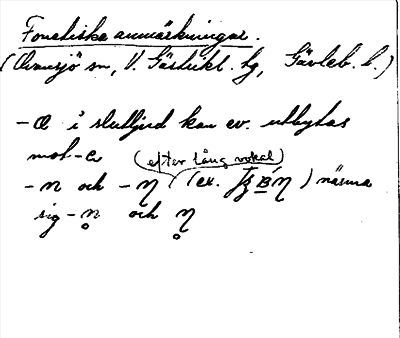 Fonetiska anmärkningar.
(Ovansjö sn, V. Gästrikl. hg, Gävleb. l.)
-a i slutljud kan ev. utbytas
mot -e
(efter lång vokal)
-n och -ŋ (ex. ) närma
sig -n̥ och ŋ̊